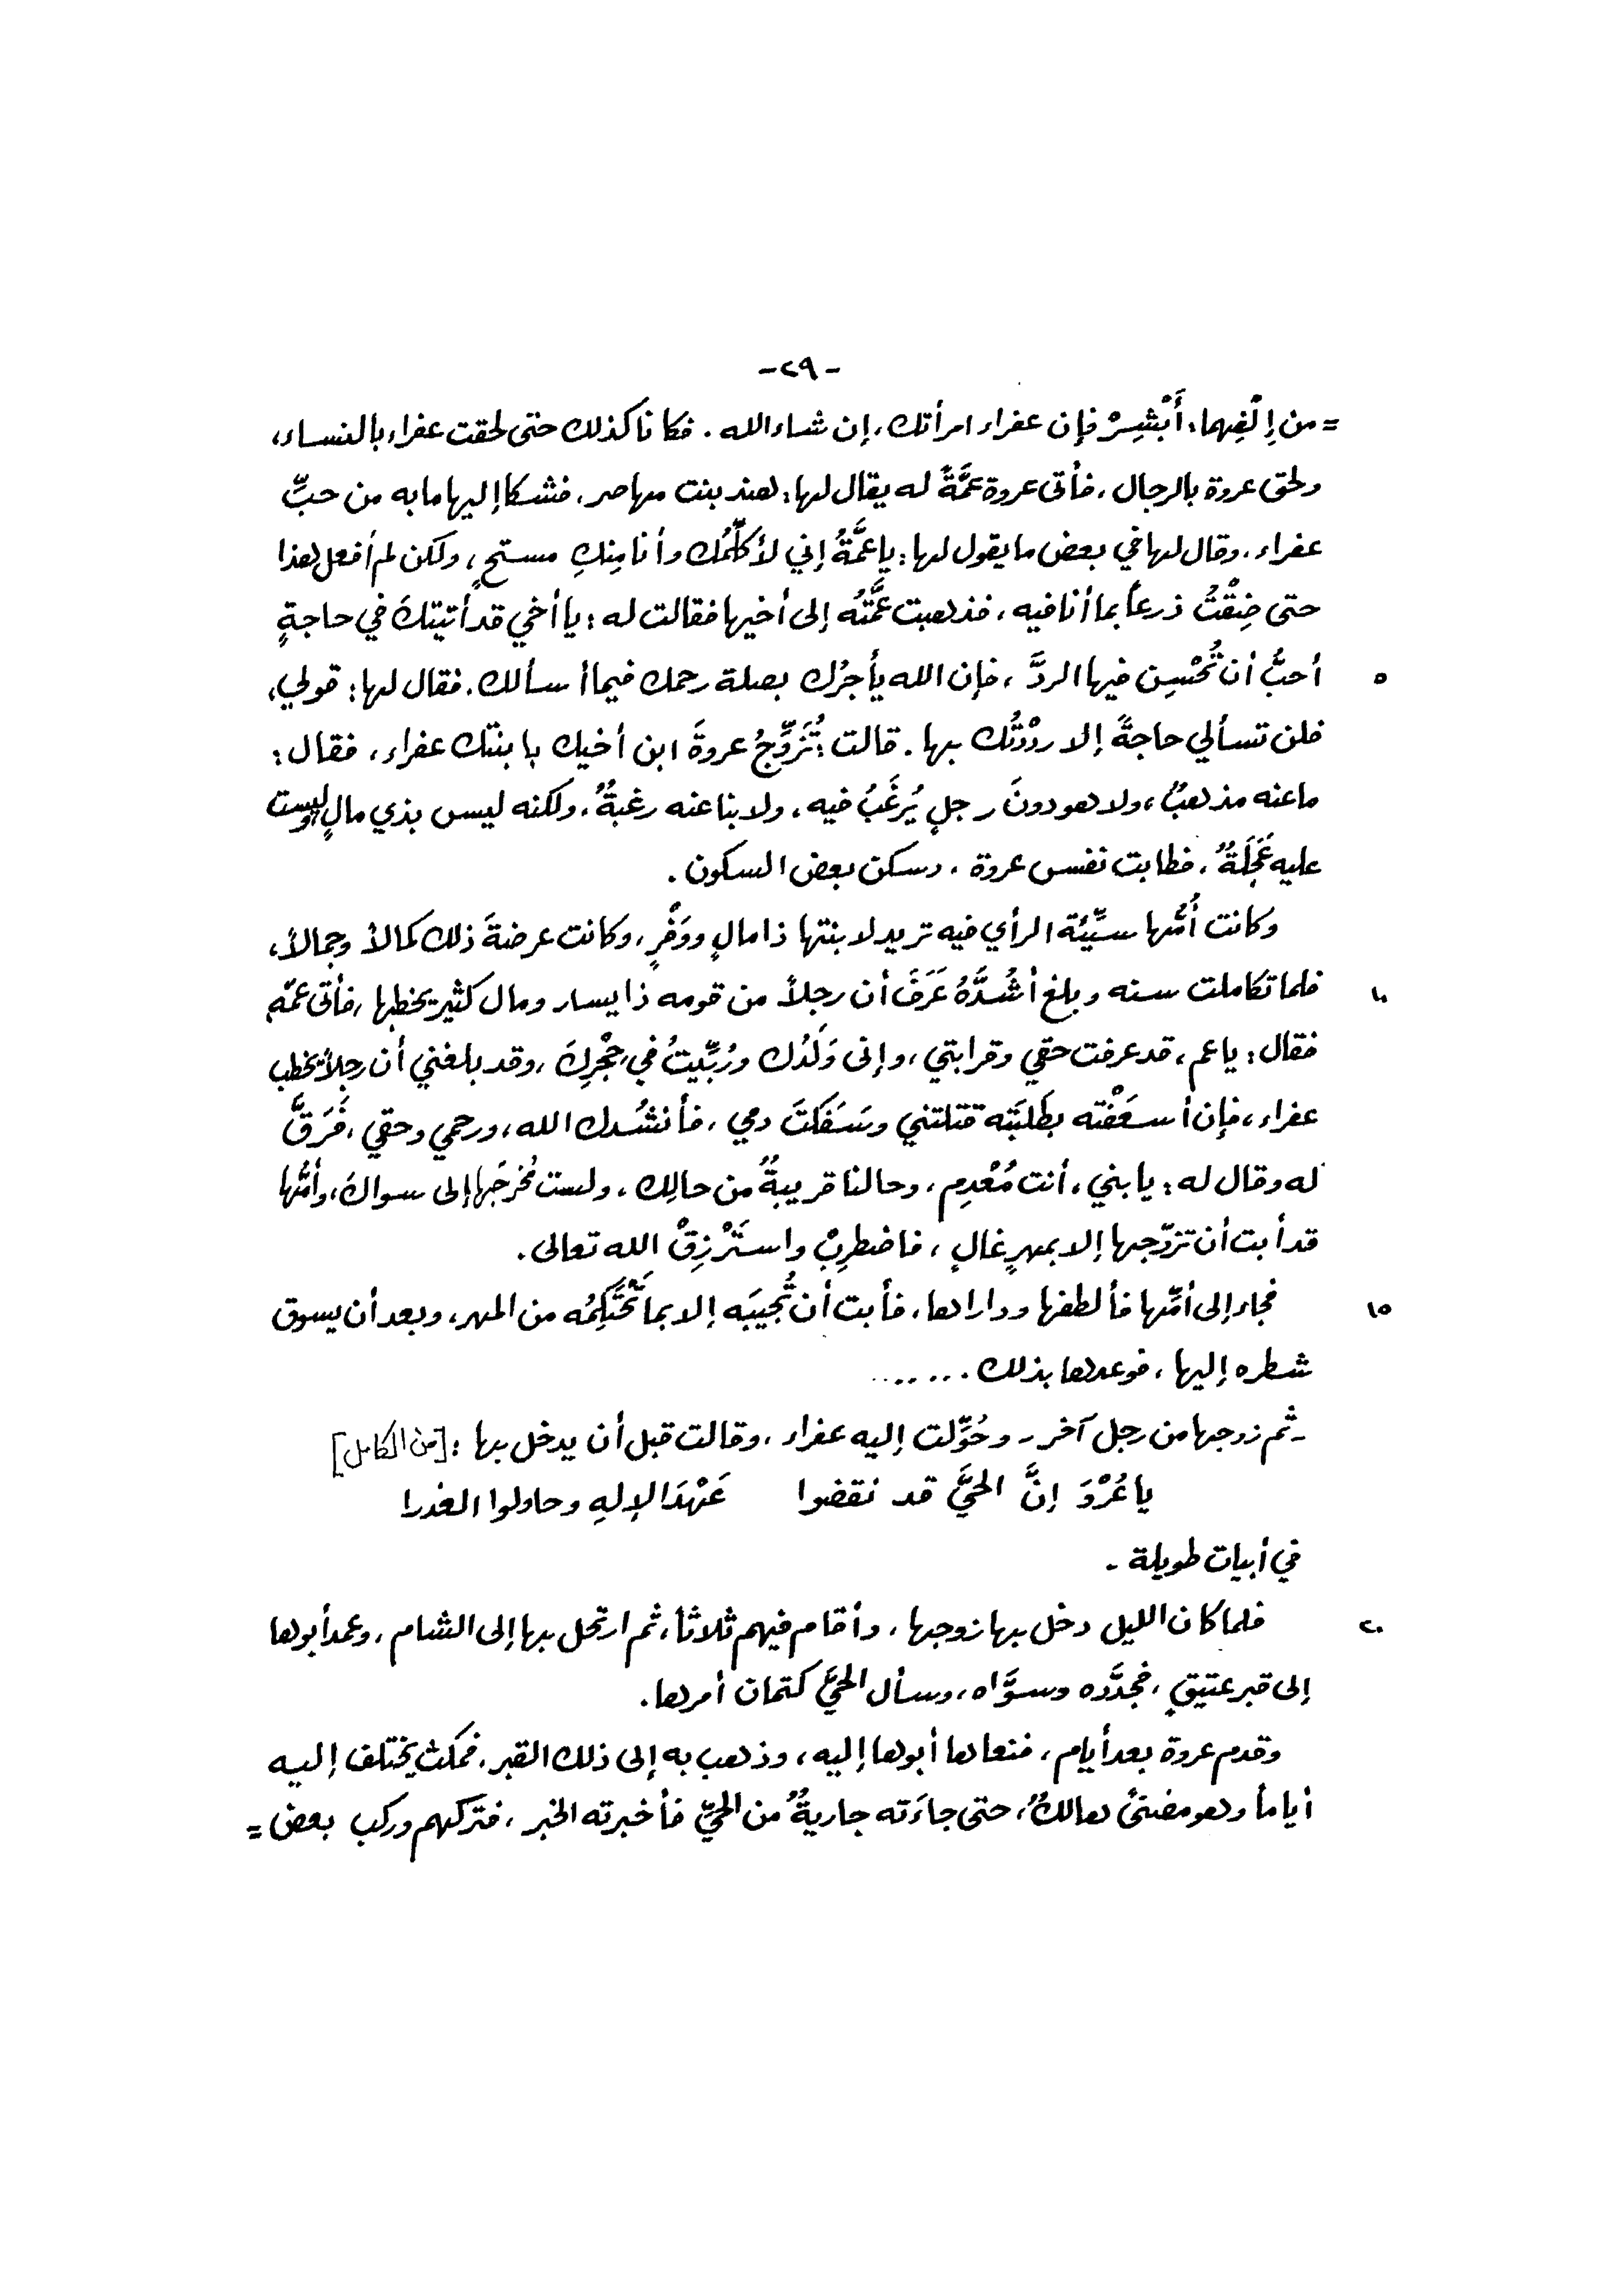 -٢٩-
= من إِلْفِهما، أَبْشِرْ فإن عفراء امرأتك، إن شاء الله. فكانا كذلك حتى لحقت عفراء بالنساء،
ولحق عروة بالرجال، فأتى عروة عمَّةً له يقال لها: هند بنت مهاصر، فشكا إليها ما به من حبِّ
عفراء، وقال لها في بعض ما يقول لها: يا عمَّةُ إني لأكلِّمُك وأنا مِنكِ مستحٍ، ولكن لم أفعل هذا
حتى ضِقْتُ ذرعاً بما أنا فيه، فذهبت عمَّتُه إلى أخيها فقالت له: يا أخي قد أتيتكَ في حاجةٍ
٥ أحبُّ أن تُحْسِن فيها الردَّ، فإن الله يأجرُك بصلة رحمك فيما أسألك. فقال لها: قولي،
فلن تسألي حاجةً إلا ردْدتُك بها. قالت: تُزَوِّجُ عروةَ ابن أخيك بابنتك عفراء، فقال:
ما عنه مذهبٌ، ولا هو دونَ رجلٍ يُرغَبُ فيه، ولا بنا عنه رغبةٌ، ولكنه ليس بذي مالٍ وليست
عليه عَجَلَةٌ، فطابت نفس عروة، وسكن بعض السكون.
وكانت أمُّها سيِّئة الرأي فيه تريد لابنتها ذا مالٍ ووَفْرٍ، وكانت عرضةَ ذلك كمالاً وجمالاً،
١٠ فلما تكاملت سنه وبلغ أشُدَّهُ عَرَفَ أن رجلاً من قومه ذا يسار ومال كثير يخطبها، فأتى عمّه
فقال: يا عم، قد عرفت حقي وقرابتي، وإني وَلَدُك ورُبِّيتُ في حِجْرِكَ، وقد بلغني أن رجلاً يخطب
عفراء، فإن أسعَفْته بطَلَبَتِه قتلتني وسَفَكتَ دمي، فأنشُدك الله، ورحمي وحقي، فَرَقَّ
له وقال له: يا بني، أنت مُعْدِم، وحالنا قريبةٌ من حالك، ولست مُخرجَها إلى سواكَ، وأمُّها
قد أبت أن تزوّجها إلا بمهرٍ غالٍ، فاضطرِبْ واستَرْزِقْ الله تعالى.
١٥ فجاء إلى أمِّها فألطفها وداراها، فأبت أن تُجيبَه إلا بما تَحْتَكِمُه من المهر، وبعد أن يسوق
شطره إليها، فوعدها بذلك.......
- ثم زوجها من رجل آخر - وحُوِّلت إليه عفراء، وقالت قبل أن يدخل بها: [من الكامل]
يا عُرْوَ إنَّ الحيَّ قد نقضوا     عَهْدَ الإلهِ وحاولوا الغدرا
في أبيات طويلة -
٢٠ فلما كان الليل دخل بها زوجها، وأقام فيهم ثلاثاً، ثم ارتحل بها إلى الشام، وعمد أبوها
إلى قبر عتيقٍ، فجدَّده وسوَّاه، وسأل الحيَّ كتمان أمرها.
وقدم عروة بعد أيام، فنعاها أبوها إليه، وذهب به إلى ذلك القبر، فمكث يختلف إليه
أياماً وهو مضنىً هالكٌ، حتى جاءَته جاريةٌ من الحيِّ فأخبرته الخبر، فتركهم وركب بعض =